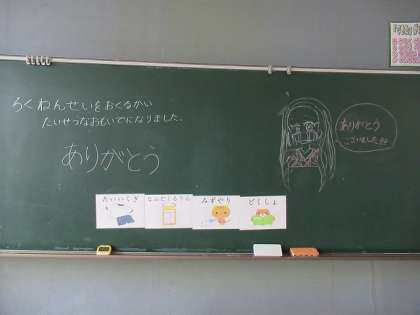 ろくねんせいをおくるかい
たいせつなおもいでになりました。
ありがとう
ありがとう
ございました
たいいくぎ
みずやり
どくしょ